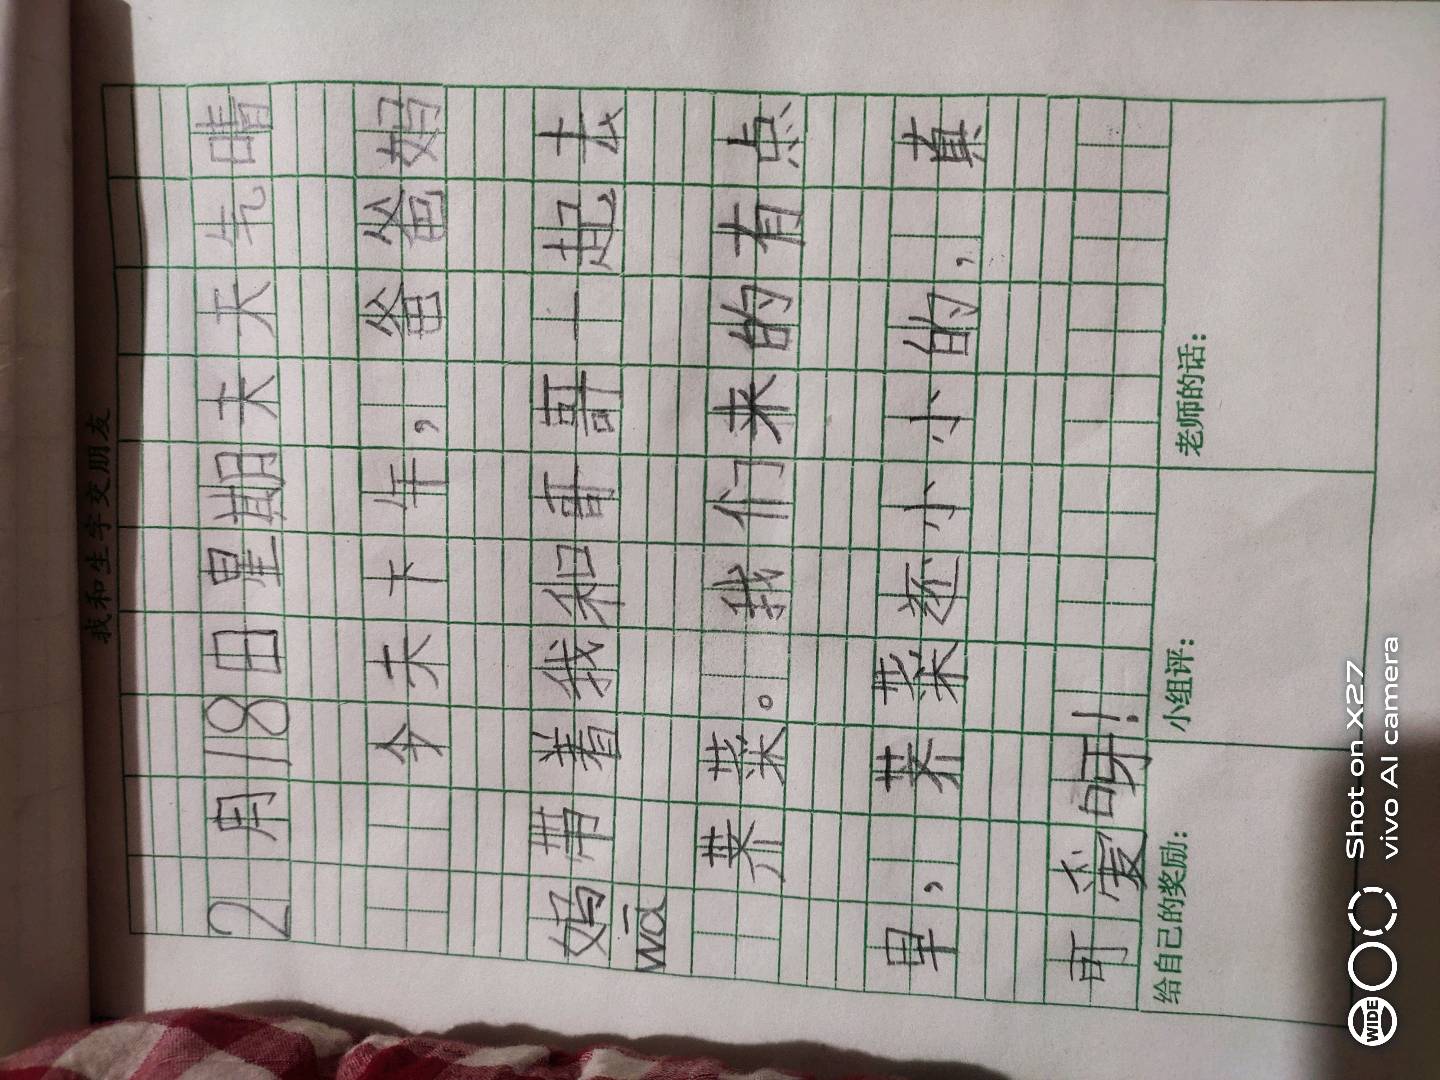 我和生字交朋友
2月18日星期天天气晴
今天下午，爸爸妈
妈带着我和哥哥一起去
wā
荠菜。我们来的有点
早，荠菜还小小的，真
可爱呀！
给自己的奖励：
小组评：
老师的话：
WIDE
Shot on X27
vivo AI camera